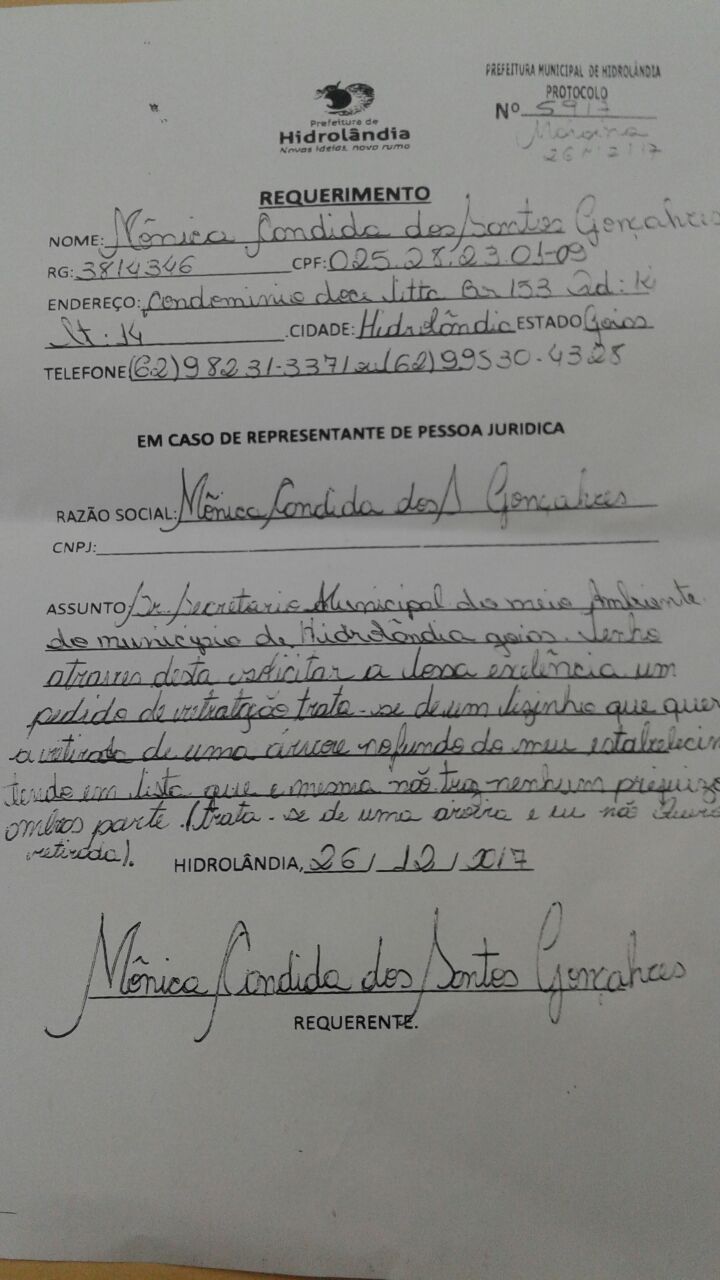 PREFEITURA MUNICIPAL DE HIDROLÂNDIA
PROTOCOLO
Nº 5917
26 12 17
Prefeitura de
Hidrolândia
Novas ideias, novo rumo
REQUERIMENTO
NOME: Mônica Candida dos Santos Gonçalves
RG: 3814346 CPF: 025.28.23.01-09
ENDEREÇO: Condominio Br 153 Qd: K
Lt: 14 .CIDADE: Hidrolândia ESTADO Goias
TELEFONE (62)98231-3371 ou (62)99530-4328
EM CASO DE REPRESENTANTE DE PESSOA JURIDICA
RAZÃO SOCIAL: Mônica Candida dos S Gonçalves
CNPJ:
ASSUNTO Sr. Secretario Municipal do meio Ambiente
do municipio de Hidrolândia goias. Venho
atraves desta solicitar a Vossa exelência um
pedido de retratação trata-se de um vizinho que quer
a retirada de uma árvore no fundo do meu estabelecim
tendo em vista que e mesma não traz nenhum prejuizo
ambros parte. (trata-se de uma aroira e eu não quero
retirada).
HIDROLÂNDIA, 26 / 12 / 2017
Mônica Candida dos Santos Gonçalves
REQUERENTE.